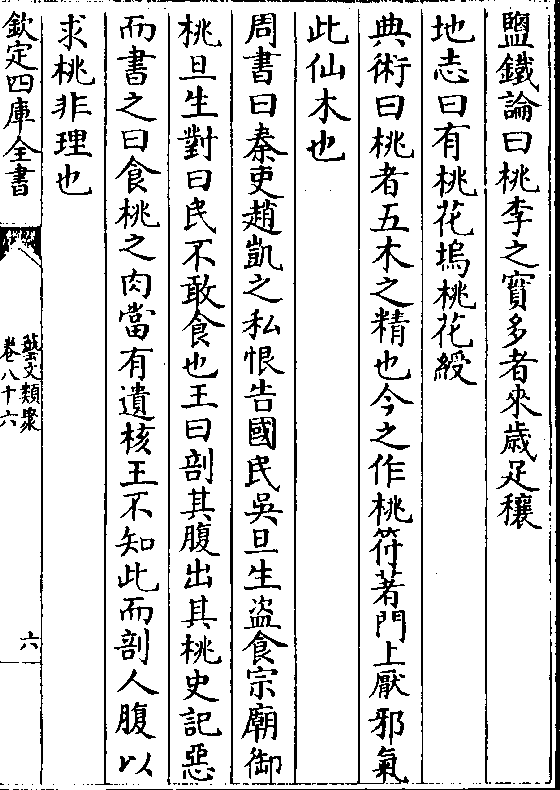 鹽鐵論曰桃李之實多者來歲足穰
地志曰有桃花塢桃花綬
典術曰桃者五木之精也今之作桃符著門上厭邪氣
此仙木也
周書曰秦吏趙凱之私恨告國民吳旦生盜食宗廟御
桃旦生對曰民不敢食也王曰剖其腹出其桃史記惡
而書之曰食桃之肉當有遺核王不知此而剖人腹以
求桃非理也
欽定四庫全書
藝文類聚
卷八十六
六